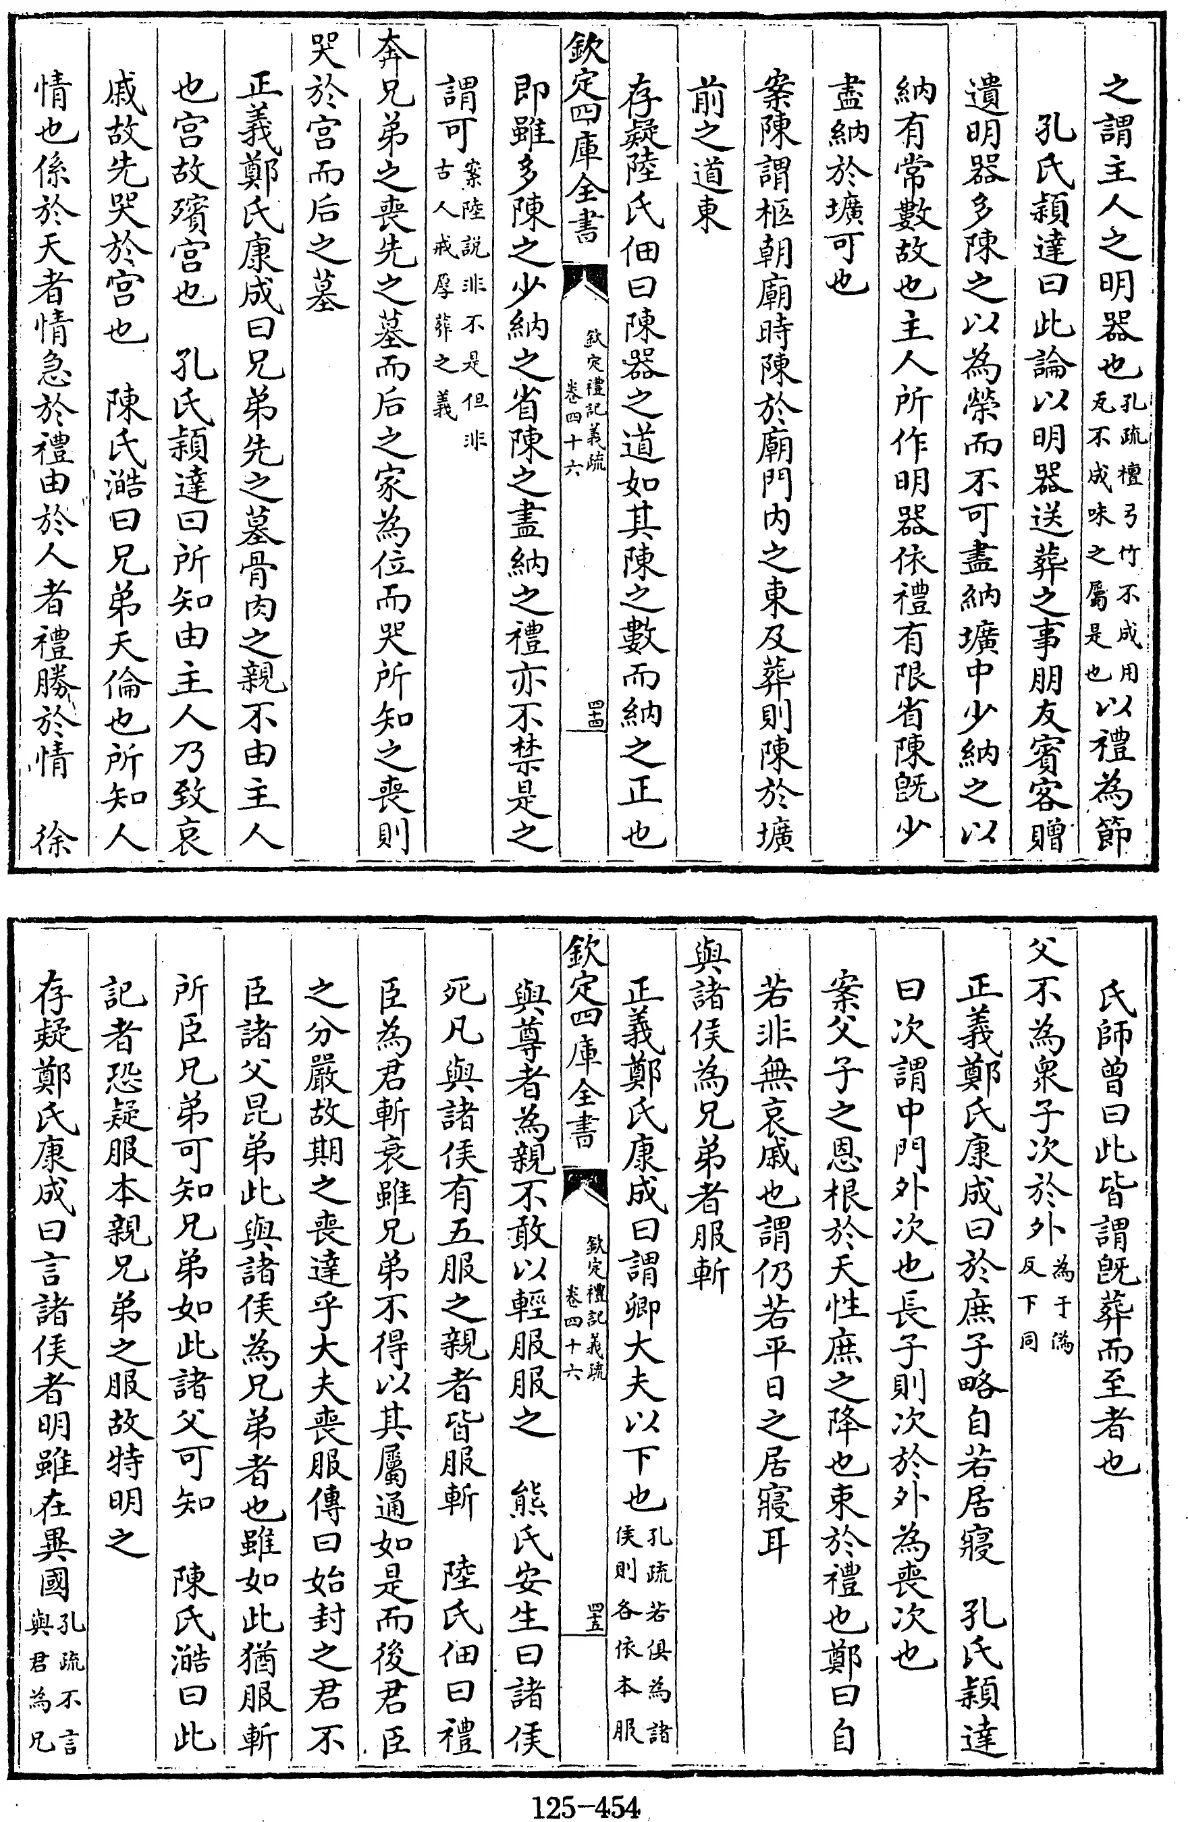 之謂主人之明器也孔疏檀弓竹不成用瓦不成味之屬是也以禮為節
孔氏穎達曰此論以明器送葬之事朋友賓客贈
遺明器多陳之以為榮而不可盡納壙中少納之以
納有常數故也主人所作明器依禮有限省陳旣少
盡納於壙可也
案陳謂柩朝廟時陳於廟門内之東及葬則陳於壙
前之道東
存疑陸氏佃曰陳器之道如其陳之數而納之正也
欽定四庫全書
欽定禮記義疏
卷四十六
四十四
即雖多陳之少納之省陳之盡納之禮亦不禁是之
謂可案陸説非不是但非古人戒厚葬之義
奔兄弟之喪先之墓而后之家為位而哭所知之喪則
哭於宫而后之墓
正義鄭氏康成曰兄弟先之墓骨肉之親不由主人
也宫故殯宫也 孔氏穎達曰所知由主人乃致哀
戚故先哭於宫也 陳氏澔曰兄弟天倫也所知人
情也係於天者情急於禮由於人者禮勝於情 徐
氏師曾曰此皆謂旣葬而至者也
父不為衆子次於外為于偽反下同
正義鄭氏康成曰於庶子略自若居寢 孔氏穎達
曰次謂中門外次也長子則次於外為喪次也
案父子之恩根於天性庶之降也束於禮也鄭曰自
若非無哀戚也謂仍若平日之居寢耳
與諸侯為兄弟者服斬
正義鄭氏康成曰謂卿大夫以下也孔疏若俱為諸侯則各依本服
欽定四庫全書
欽定禮記義疏
卷四十六
四十五
與尊者為親不敢以輕服服之 熊氏安生曰諸侯
死凡與諸侯有五服之親者皆服斬 陸氏佃曰禮
臣為君斬衰雖兄弟不得以其屬通如是而後君臣
之分嚴故期之喪達乎大夫喪服傳曰始封之君不
臣諸父昆弟此與諸侯為兄弟者也雖如此猶服斬
所臣兄弟可知兄弟如此諸父可知 陳氏澔曰此
記者恐疑服本親兄弟之服故特明之
存疑鄭氏康成曰言諸侯者明雖在異國孔疏不言與君為兄
125-454